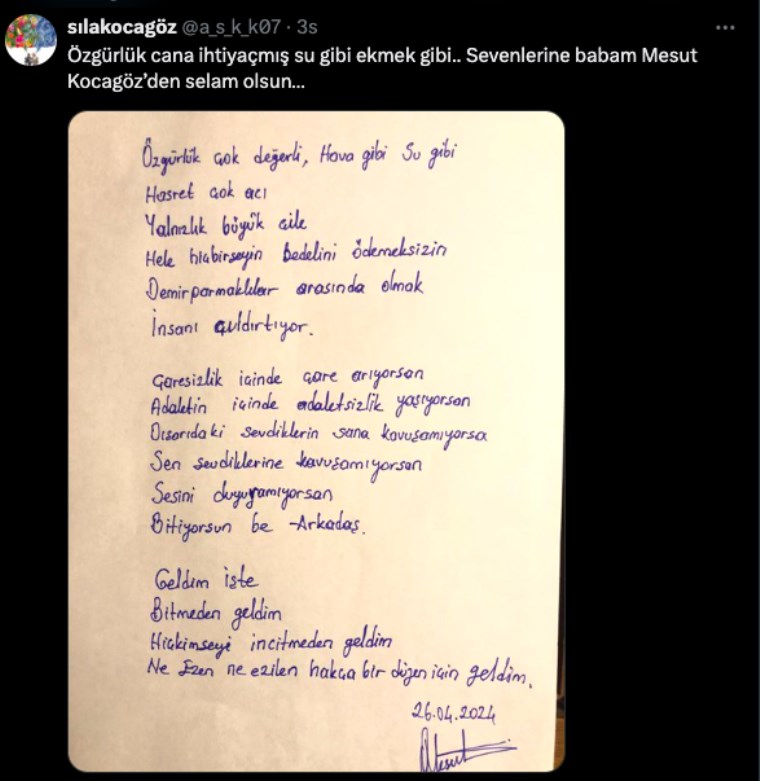 sılakocagöz @a_s_k_k07 · 3s
Özgürlük cana ihtiyaçmış su gibi ekmek gibi.. Sevenlerine babam Mesut
Kocagöz'den selam olsun...
Özgürlük çok değerli, Hava gibi Su gibi
Hasret çok acı
Yalnızlık büyük çile
Hele hiçbirşeyin bedelini ödemeksizin
Demirparmaklıklar arasında olmak
İnsanı çıldırtıyor.
Çaresizlik içinde çare arıyorsan
Adaletin içinde adaletsizlik yaşıyorsan
Dışarıdaki sevdiklerin sana kavuşamıyorsa
Sen sevdiklerine kavuşamıyorsan
Sesini duyuramıyorsan
Bitiyorsun be -Arkadaş.
Geldim işte
Bitmeden geldim
Hiçkimseyi incitmeden geldim
Ne Ezen ne ezilen hakça bir düzen için geldim.
26.04.2024
Mesut